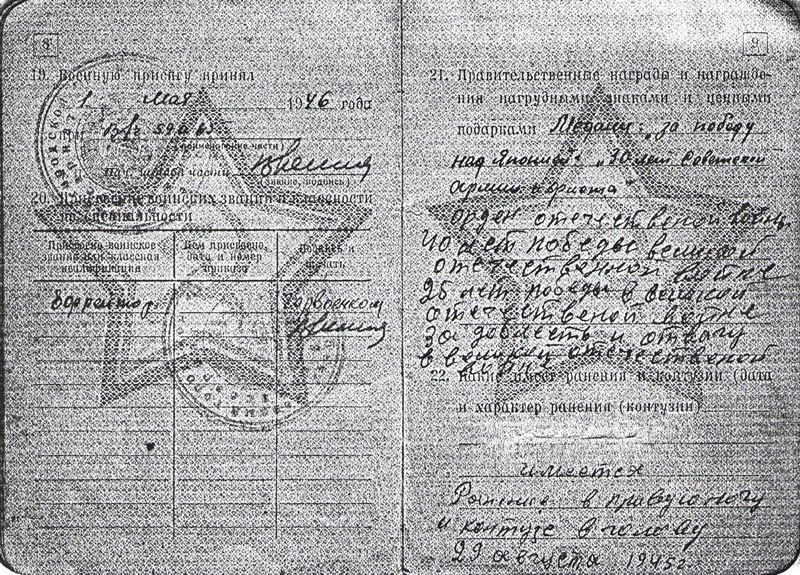 8
19. Военную присягу принял
1 мая 1946 года
при
(наименование части)
части
(звание, подпись)
20. Присвоение воинских званий и классности
по специальности
Присвоено воинское
звание или классная
квалификация
Кем присвоено,
дата и номер
приказа
Подпись и
печать
Горвоенком
9
21. Правительственные награды и награжде-
ния нагрудными знаками и ценными
подарками Медали: „За победу
над Японией“ „30 лет Советской
Армии и флота“
орден отечественой войны
40 лет победы великой
отечественной войне
25 лет победы в великой
отечественой войне
за доблесть и отвагу
в великой отечественой
войне
22. Какие имеет ранения и контузии (дата
и характер ранения (контузии)
имеется
Ранение в правую ногу
и контузе в голову
29 августа 1945г.